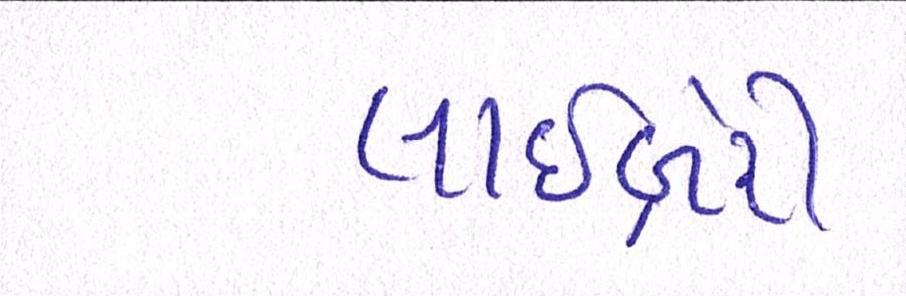 લાઈબ્રેરી